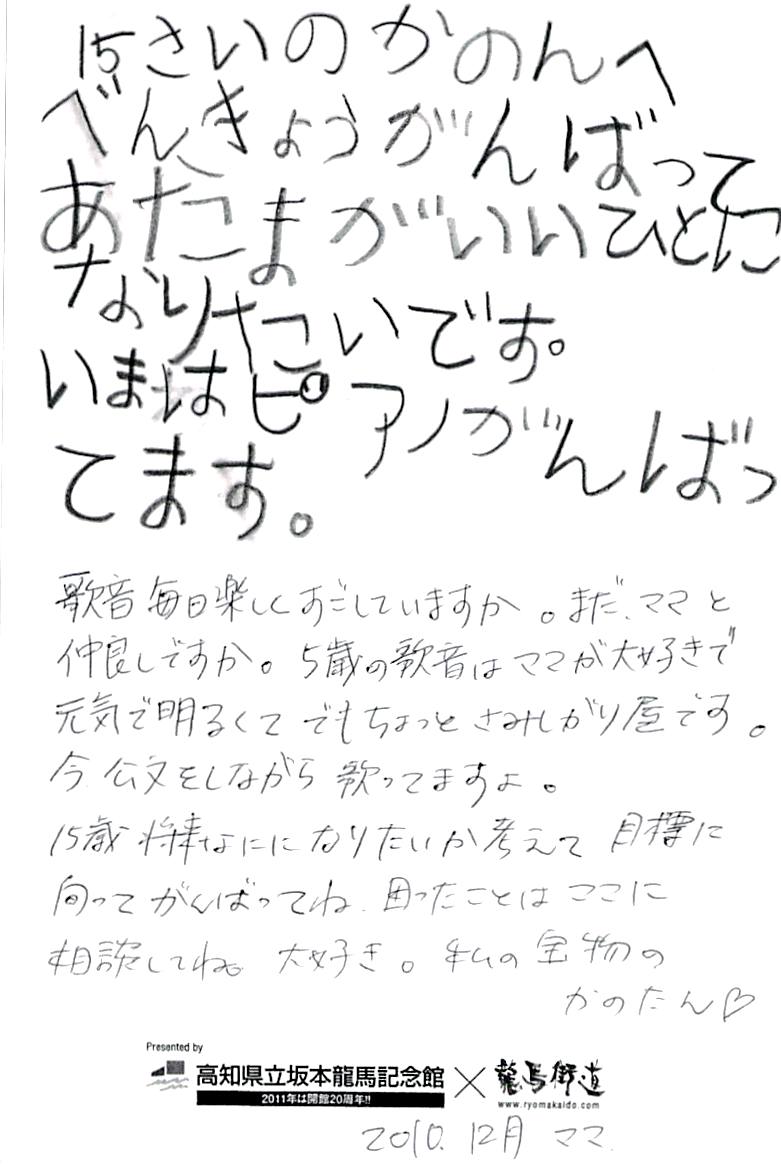 15さいのかのんへ
べんきょうがんばって
あたまがいいひとに
なりたいです。
いまはピアノがんばっ
てます。
歌音毎日楽しくすごしていますか。まだ、ママと
仲良しですか。5歳の歌音はママが大好きで
元気で明るくて でもちょっと さみしがり屋です。
今 公文をしながら 歌ってますよ。
15歳 将来なにになりたいか考えて 目標に
向って がんばってね。困ったことは ママに
相談してね。大好き。私の宝物の
かのたん♡
Presented by
高知県立坂本龍馬記念館 × 龍馬街道
2011年は開館20周年!!
www.ryomakaido.com
2010. 12月 ママ